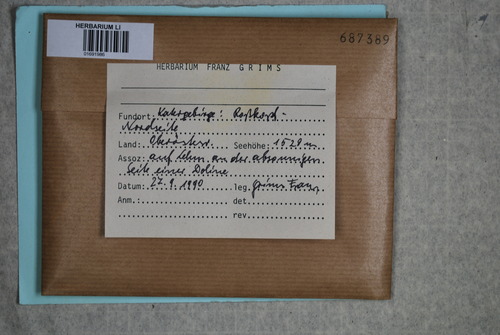 HERBARIUM LI
687389
HERBARIUM FRANZ GRIMS
Fundort: Katergebirge: Roßkopf-
Nordseite
Land: Oberösterr. Seehöhe: 1520 m
Assoz: auf Ulm. an der absonnigen
Seite einer Doline
Datum: 22.9.1990 leg. Grims Franz
Anm.: det.
rev.